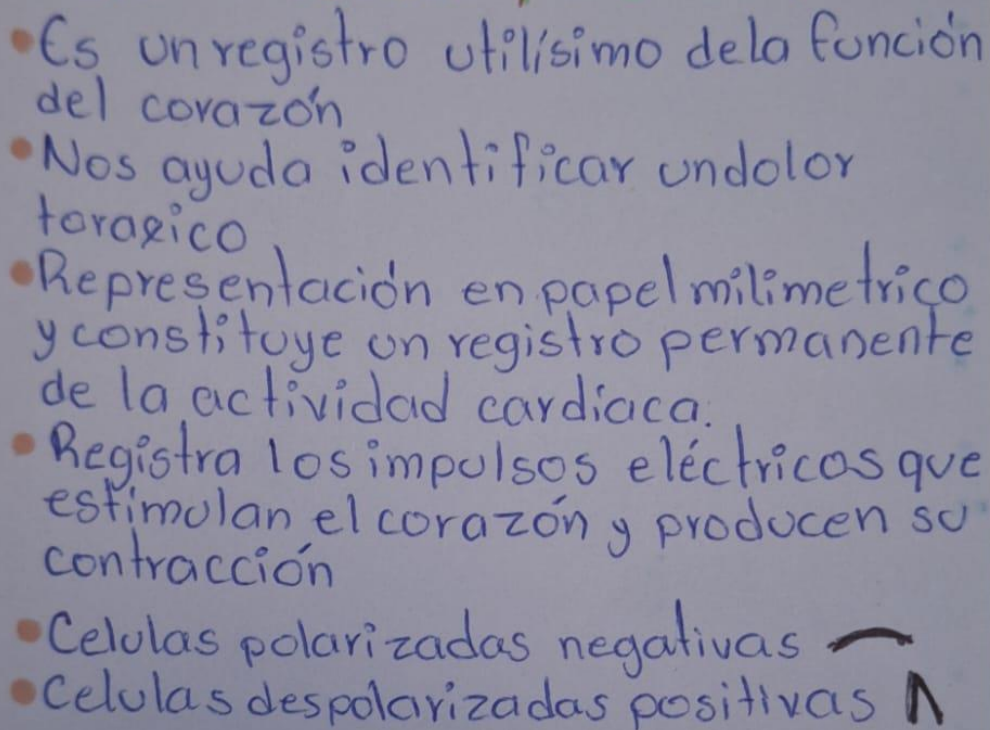 •Es un registro utilísimo dela función
del corazón
•Nos ayuda identificar undolor
toraxico
•Representación en papel milimetrico
y constituye un registro permanente
de la actividad cardíaca.
•Registra los impulsos eléctricos que
estimulan el corazón y producen su
contracción
•Celulas polarizadas negativas
•Celulas despolarizadas positivas